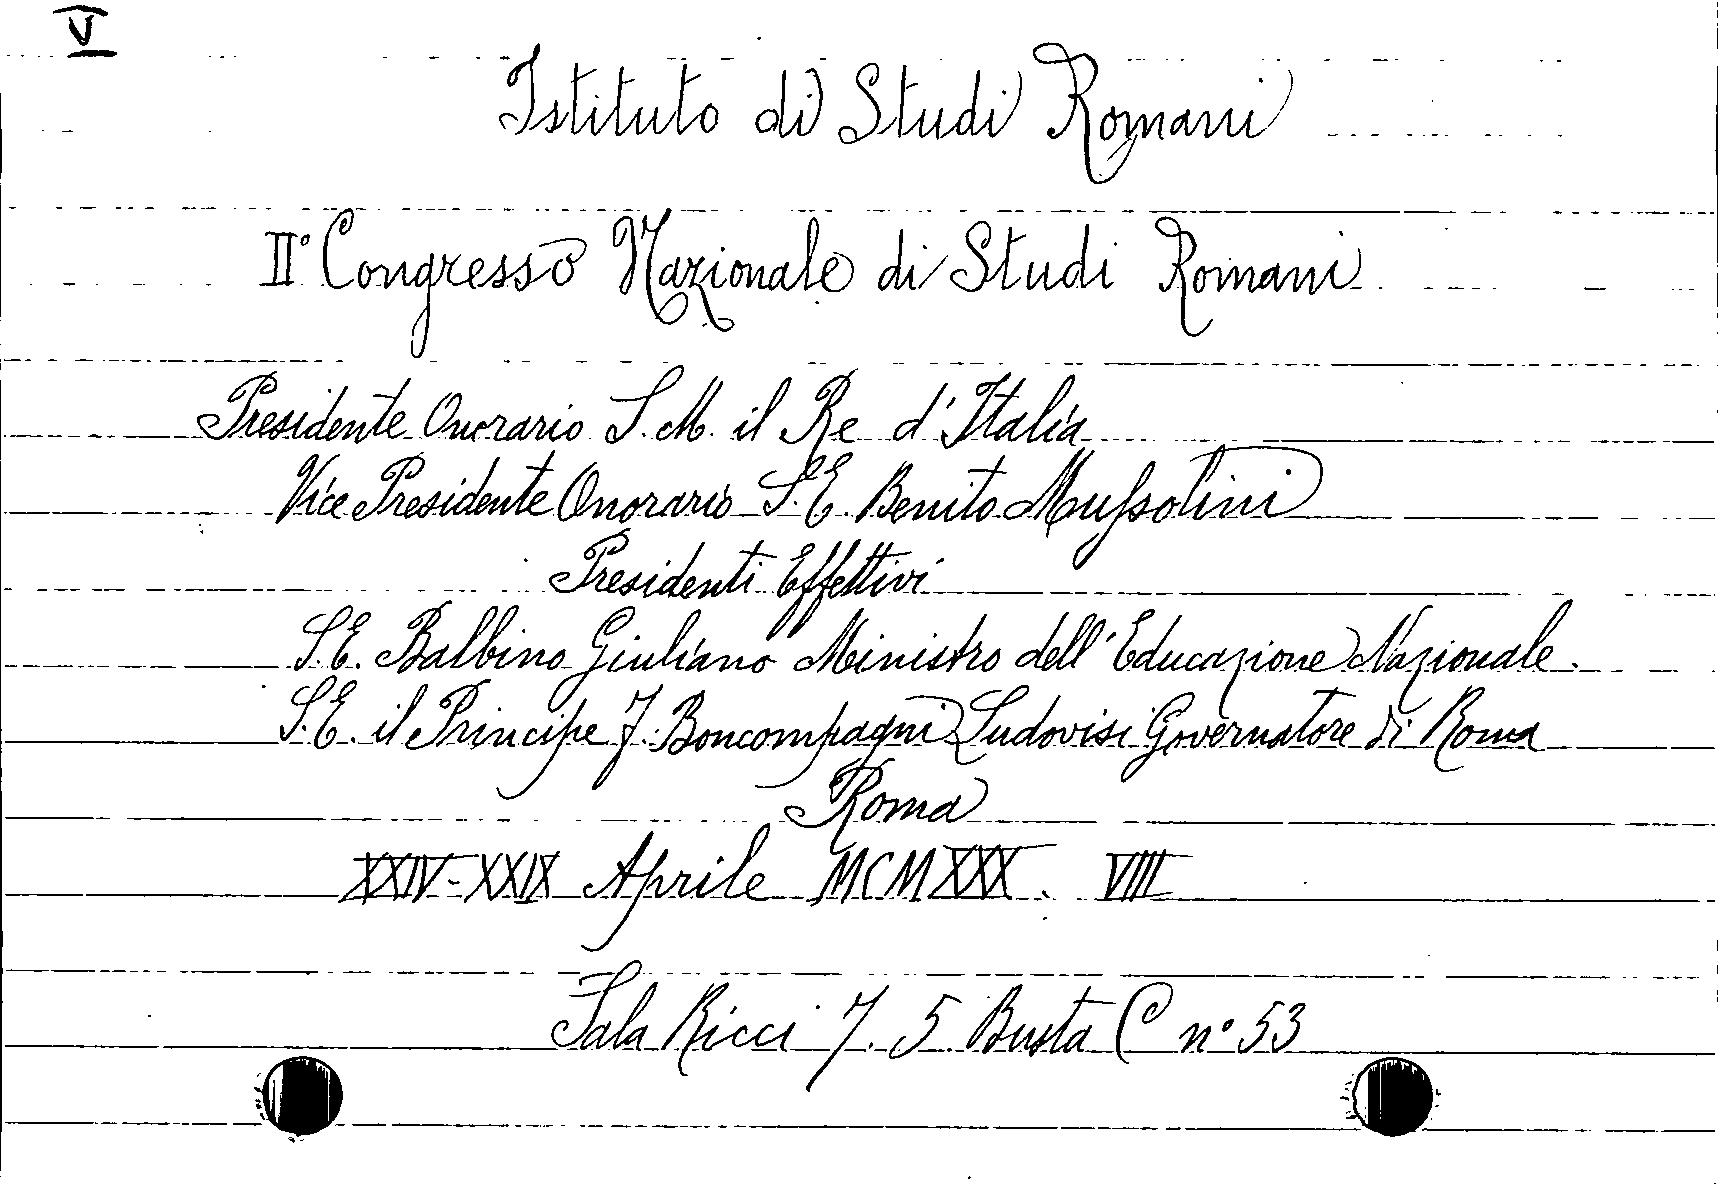 V
Istituto di Studi Romani
II° Congresso Nazionale di Studi Romani
Presidente Onorario S. M. il Re d'Italia
Vice Presidente Onorario S. E. Benito Mussolini
Presidenti Effettivi
S. E. Balbino Giuliano Ministro dell'Educazione Nazionale.
S. E. il Principe F. Boncompagni Ludovisi Governatore di Roma
Roma
XXIV-XXIX Aprile MCMXXX. VIII
Sala Ricci 7. 5 Busta C n° 53